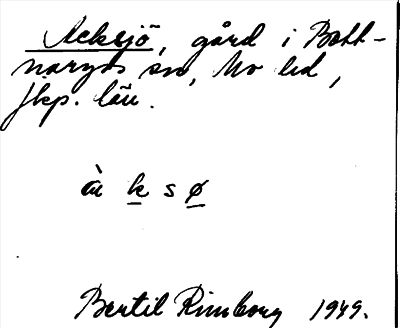 Acksjö, gård i Bott-
naryds sn, Mo hd,
Jkp. län.
k s ø
Bertil Rimborg 1949.